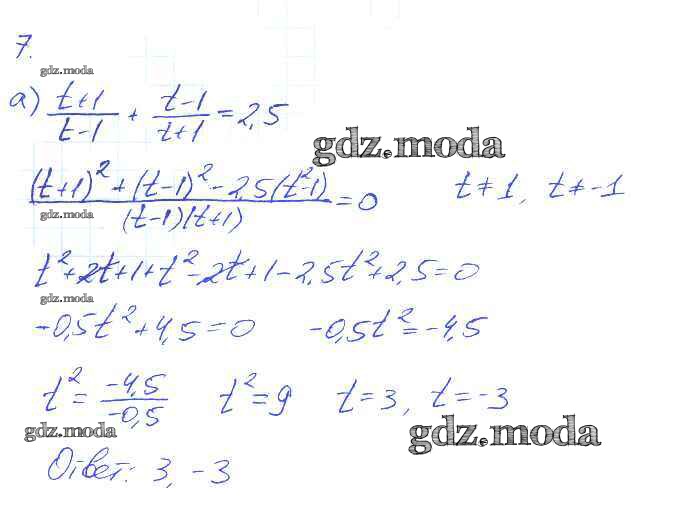 7.
gdz.moda
а) (t+1)/(t-1) + (t-1)/(t+1) = 2,5
gdz.moda
((t+1)² + (t-1)² - 2,5(t²-1))/((t-1)(t+1)) = 0    t ≠ 1, t ≠ -1
gdz.moda
t² + 2t + 1 + t² - 2t + 1 - 2,5t² + 2,5 = 0
gdz.moda
-0,5t² + 4,5 = 0    -0,5t² = -4,5
t² = -4,5/-0,5    t² = 9    t = 3, t = -3
gdz.moda
gdz.moda
Ответ: 3, -3